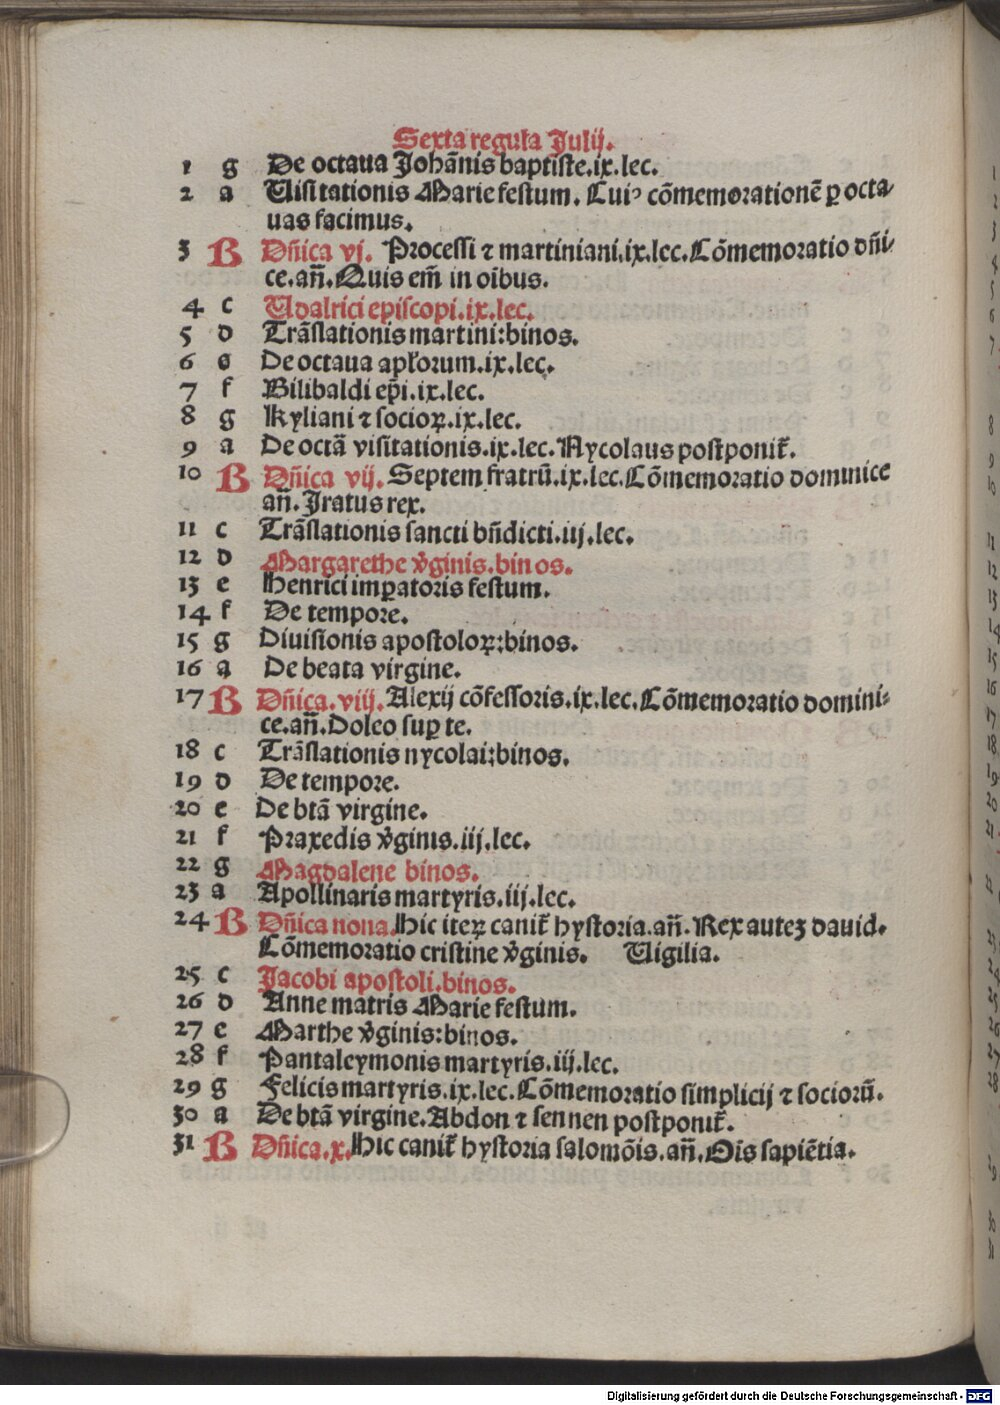 Sexta regula Julij.
1 g De octaua Johãnis baptiste.ix.lec.
2 a Uisitationis Marie festum. Cuiꝰ cõmemorationẽ ꝑ octa-
uas facimus.
3 B Dñica vj. Processi ⁊ martiniani.ix.lec. Cõmemoratio dñi-
ce.añ. Quis em̃ in oĩbus.
4 c Udalrici episcopi.ix.lec.
5 d Trãslationis martini:binos.
6 e De octaua apłorum.ix.lec.
7 f Bilibaldi ep̃i.ix.lec.
8 g Kyliani ⁊ socioꝝ.ix.lec.
9 a De octã visitationis.ix.lec. Nycolaus postponit̃.
10 B Dñica vij. Septem fratrũ.ix.lec. Cõmemoratio dominice
añ. Iratus rex.
11 c Trãslationis sancti bñdicti.iij.lec.
12 d Margarethe v̾ginis.binos.
13 e Henrici imꝑatoris festum.
14 f De tempore.
15 g Diuisionis apostoloꝝ:binos.
16 a De beata virgine.
17 B Dñica.viij. Alexij cõfessoris.ix.lec. Cõmemoratio domini-
ce.añ. Doleo suꝑ te.
18 c Trãslationis nycolai:binos.
19 d De tempore.
20 e De btã virgine.
21 f Praxedis v̾ginis.iij.lec.
22 g Magdalene binos.
23 a Apollinaris martyris.iij.lec.
24 B Dñica nona. Hic iteꝝ canit̃ hystoria.añ. Rex autez dauid.
Cõmemoratio cristine v̾ginis. Uigilia.
25 c Jacobi apostoli.binos.
26 d Anne matris Marie festum.
27 e Marthe v̾ginis:binos.
28 f Pantaleymonis martyris.iij.lec.
29 g Felicis martyris.ix.lec. Cõmemoratio simplicij ⁊ sociorũ.
30 a De btã virgine. Abdon ⁊ sennen postponit̃.
31 B Dñica.x. Hic canit̃ hystoria salomõis.añ. Oĩs sapiẽtia.
Digitalisierung gefördert durch die Deutsche Forschungsgemeinschaft - DFG